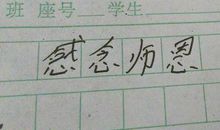 班 座号 学生
感念师恩